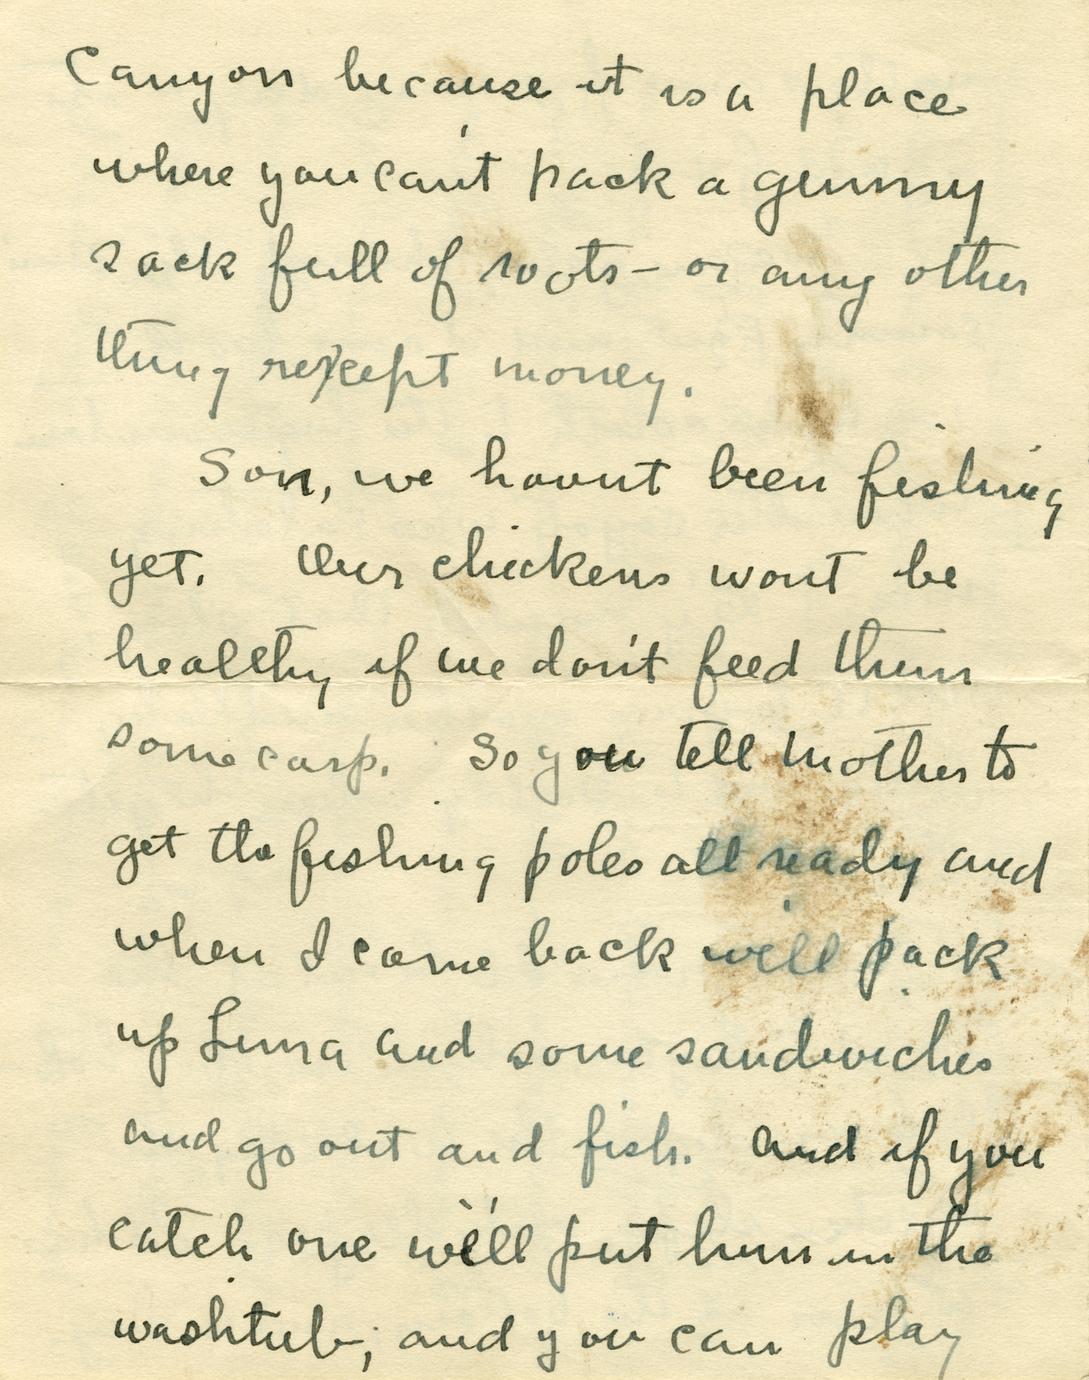 Canyon because it is a place
where you can't pack a gunny
sack full of roots - or any other
thing except money.
Son, we havnt been fishing
yet. Our chickens wont be
healthy if we don't feed them
some carp. So you tell Mother to
get the fishing poles all ready and
when I come back we'll pack
up Lima and some sandwiches
and go out and fish. And if you
catch one we'll put him in the
washtub, and you can play